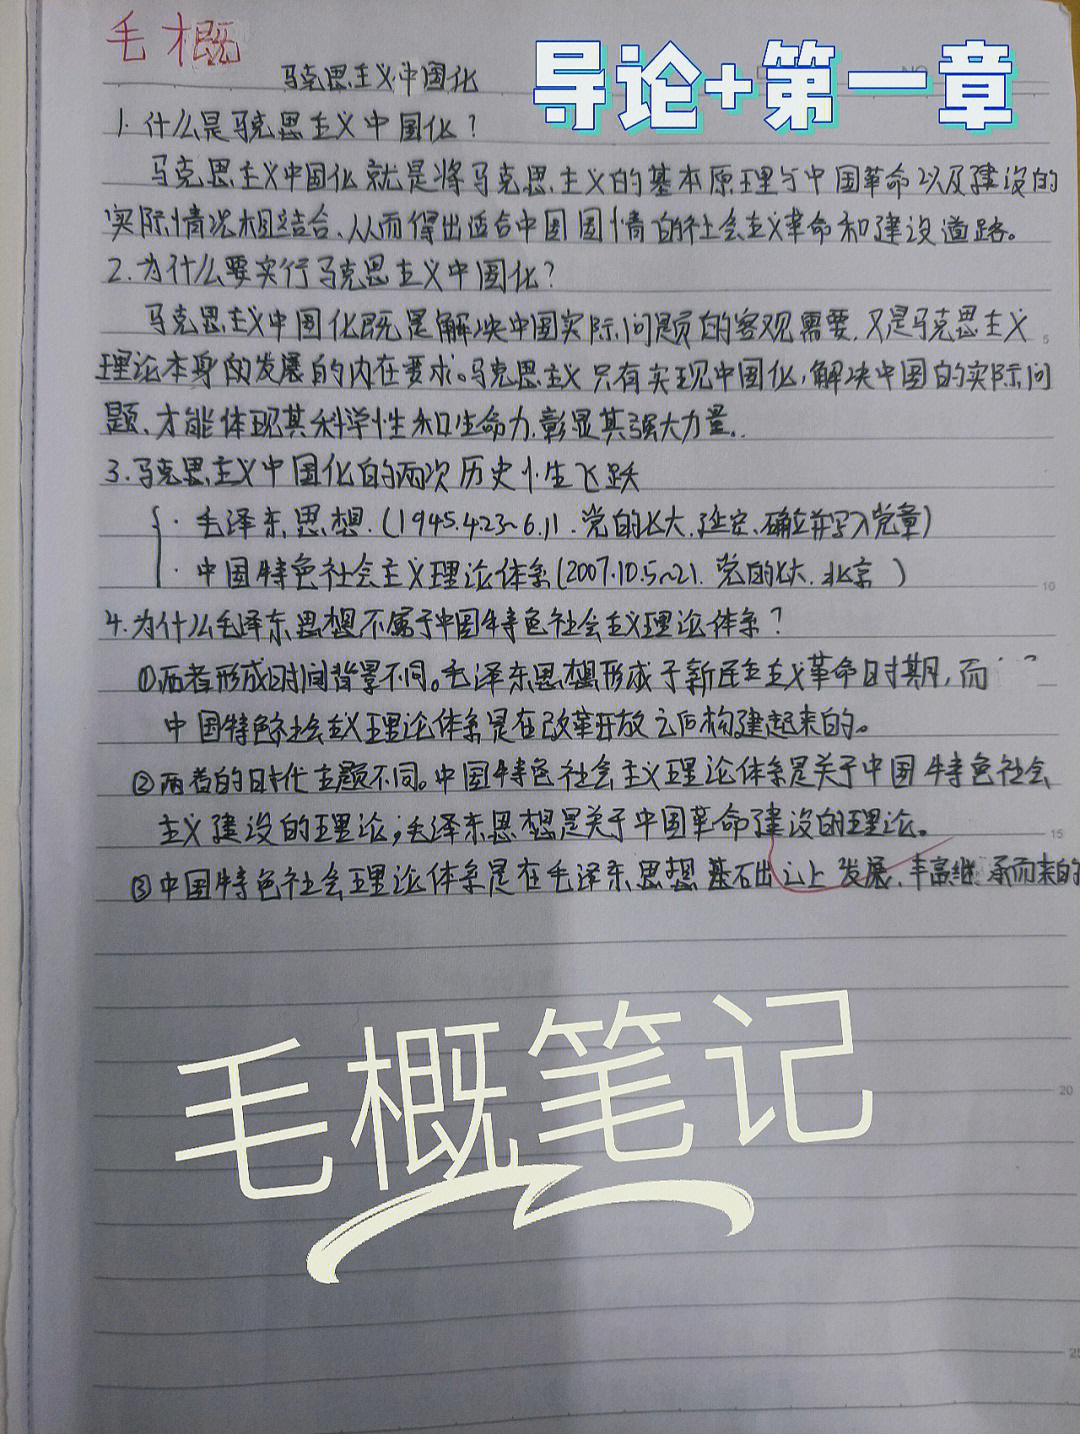 毛概
导论+第一章
马克思主义中国化
1.什么是马克思主义中国化?
马克思主义中国化就是将马克思主义的基本原理与中国革命以及建设的
实际情况相结合、从而得出适合中国国情的社会主义革命和建设道路。
2.为什么要实行马克思主义中国化?
马克思主义中国化既是解决中国实际问题的客观需要,又是马克思主义
理论本身的发展的内在要求。马克思主义只有实现中国化,解决中国的实际问
题、才能体现其科学性和生命力,彰显其强大力量.
3.马克思主义中国化的两次历史性飞跃
·毛泽东思想.(1945.4.23~6.11.党的七大.延安、确立并写入党章)
5
·中国特色社会主义理论体系(2007.10.5~21.党的七大.北京)
10
4.为什么毛泽东思想不属于中国特色社会主义理论体系?
①两者形成时间背景不同。毛泽东思想形成于新民主主义革命时期,而
中国特色社会主义理论体系是在改革开放之后构建起来的。
②两者的时代主题不同。中国特色社会主义理论体系是关于中国特色社会
主义建设的理论;毛泽东思想是关于中国革命建设的理论。
15
③中国特色社会主理论体系是在毛泽东思想基础之上发展、丰富继承而来的
毛概笔记
20
25